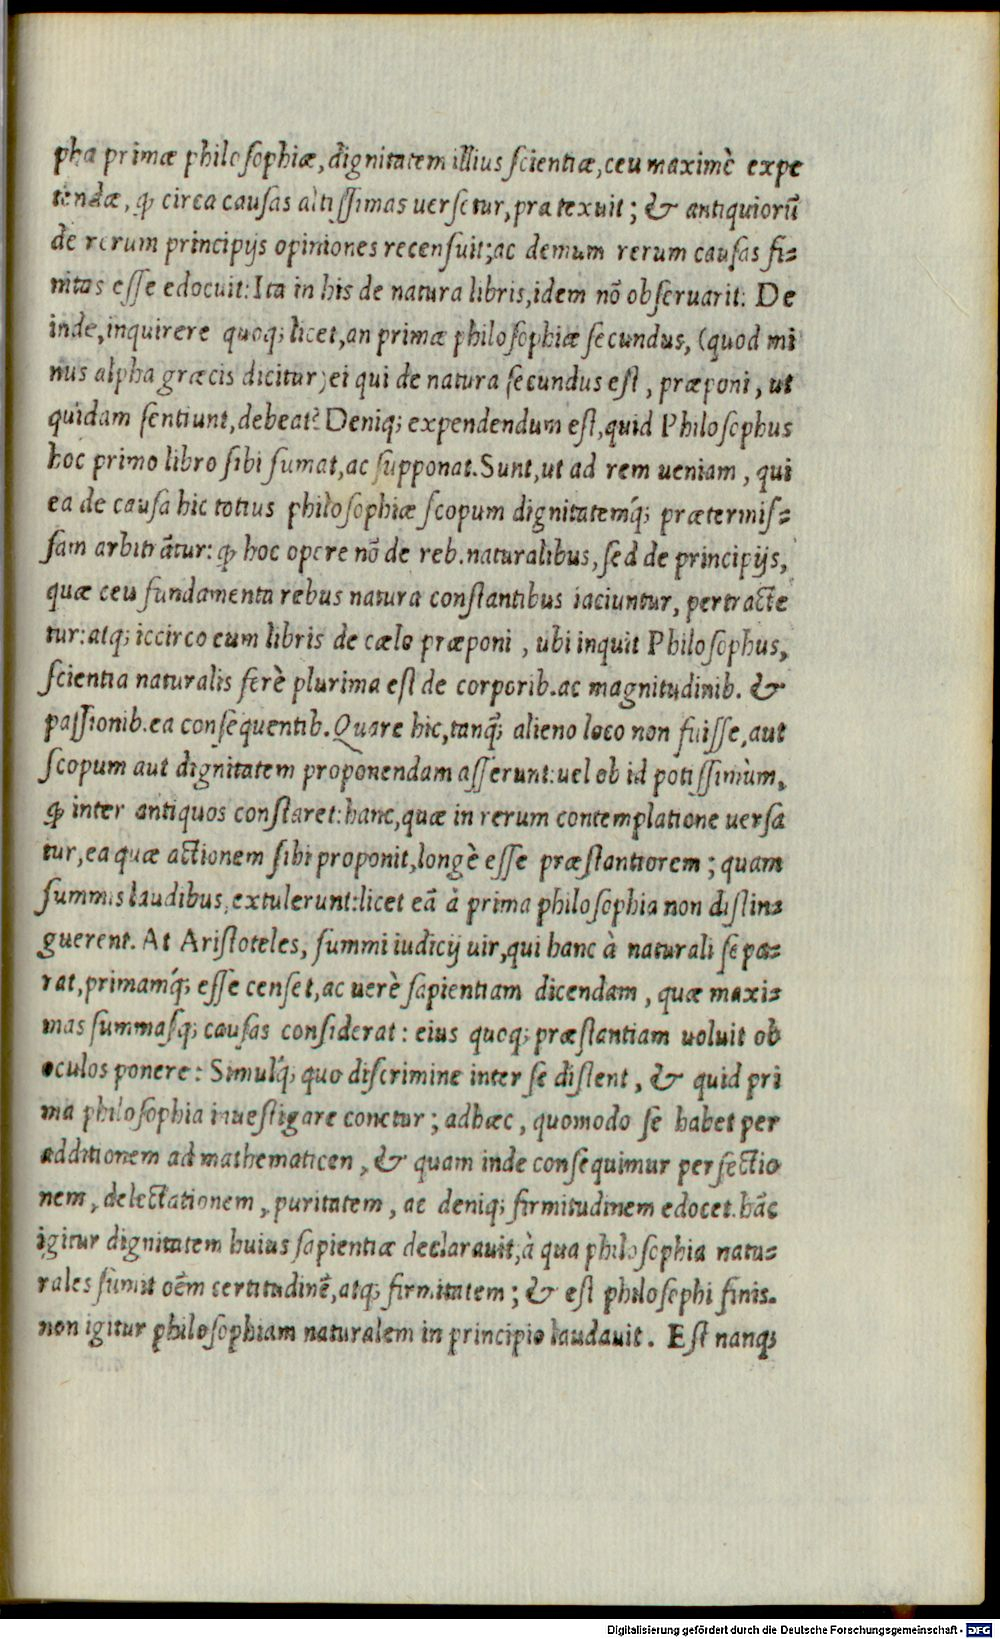 pha primæ philosophiæ, dignitatem illius scientiæ, ceu maximè expe
tendæ, ꝙ circa causas altissimas uersetur, prætexuit; & antiquiorũ
de rerum principijs opiniones recensuit; ac demum rerum causas fi-
nitas esse edocuit: Ita in his de natura libris, idem nõ obseruarit: De
inde, inquirere quoq; licet, an primæ philosophiæ secundus, (quod mi
nus alpha græcis dicitur) ei qui de natura secundus est, præponi, ut
quidam sentiunt, debeat? Deniq; expendendum est, quid Philosophus
hoc primo libro sibi sumat, ac supponat. Sunt, ut ad rem ueniam, qui
ea de causa hic totius philosophiæ scopum dignitatemq́; prætermis-
sam arbitrãtur: ꝙ hoc opere nõ de reb. naturalibus, sed de principijs,
quæ ceu fundamenta rebus natura constantibus iaciuntur, pertracte
tur: atq; iccirco eum libris de cælo præponi, ubi inquit Philosophus,
scientia naturalis ferè plurima est de corporib. ac magnitudinib. &
passionib. ea consequentib. Quare hic, tanq̃; alieno loco non fuisse, aut
scopum aut dignitatem proponendam asserunt: uel ob id potissimùm,
ꝙ inter antiquos constaret: hanc, quæ in rerum contemplatione uersa
tur, ea quæ actionem sibi proponit, longè esse præstantiorem; quam
summis laudibus, extulerunt: licet eã à prima philosophia non distin-
guerent. At Aristoteles, summi iudicij uir, qui hanc à naturali sepa-
rat, primamq́; esse censet, ac uerè sapientiam dicendam, quæ maxi-
mas summasq; causas considerat: eius quoq; præstantiam uoluit ob
oculos ponere: Simulq́; quo discrimine inter se distent, & quid pri
ma philosophia inuestigare conetur; adhæc, quomodo se habet per
additionem ad mathematicen, & quam inde consequimur perfectio
nem, delectationem, puritatem, ac deniq; firmitudinem edocet. hãc
igitur dignitatem huius sapientiæ declarauit, à qua philosophia natu-
rales sumit oẽm certitudinẽ, atq; firmitatem; & est philosophi finis.
non igitur philosophiam naturalem in principio laudauit. Est nanq;
Digitalisierung gefördert durch die Deutsche Forschungsgemeinschaft - DFG